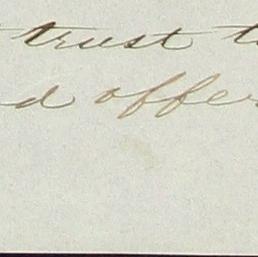 trust t
d offer